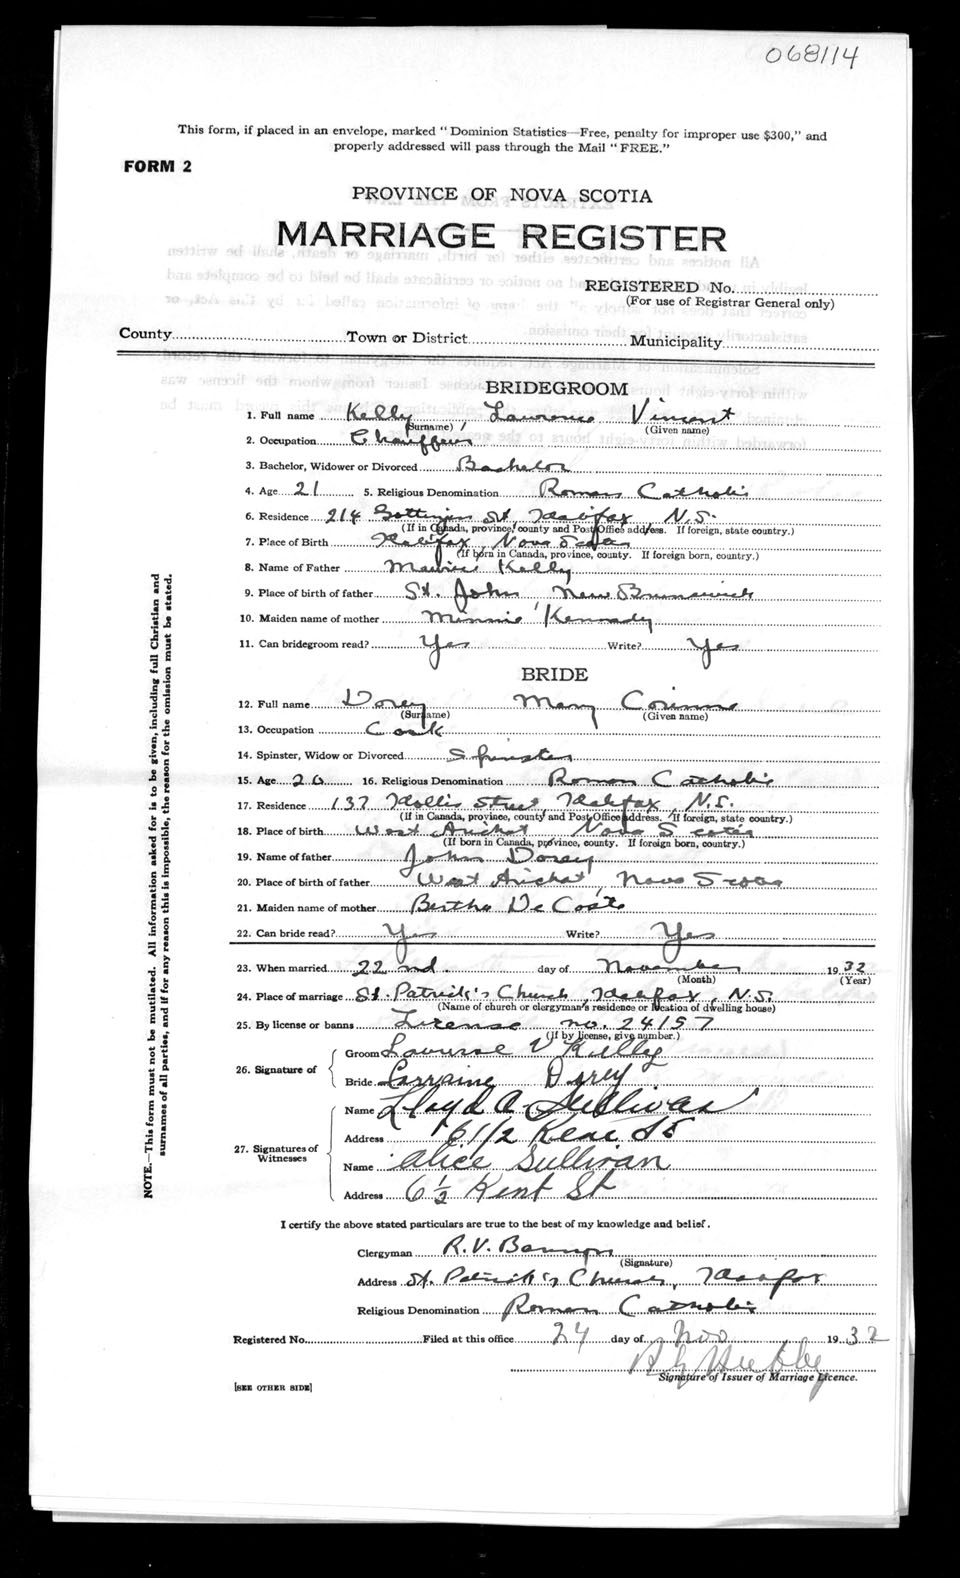 068114
This form, if placed in an envelope, marked "Dominion Statistics—Free, penalty for improper use $300," and
properly addressed will pass through the Mail "FREE."
FORM 2
PROVINCE OF NOVA SCOTIA
MARRIAGE REGISTER
REGISTERED No.
(For use of Registrar General only)
County Town or District Municipality
BRIDEGROOM
1. Full name Kelly Lawrence Vincent
(Surname) (Given name)
2. Occupation Chauffeur
3. Bachelor, Widower or Divorced Bachelor
4. Age 21 5. Religious Denomination Roman Catholic
6. Residence 214 Gottingen St, Halifax N.S.
(If in Canada, province, county and Post Office address. If foreign, state country.)
7. Place of Birth Halifax Nova Scotia
(If born in Canada, province, county. If foreign born, country.)
8. Name of Father Maurice Kelly
9. Place of birth of father St. John New Brunswick
10. Maiden name of mother Minnie Kennedy
11. Can bridegroom read? Yes Write? Yes
BRIDE
12. Full name Dorey Mary Corinne
(Surname) (Given name)
13. Occupation Cook
14. Spinster, Widow or Divorced Spinster
15. Age 26 16. Religious Denomination Roman Catholic
17. Residence 137 Hollis Street Halifax, N.S.
(If in Canada, province, county and Post Office address. If foreign, state country.)
18. Place of birth West Arichat Nova Scotia
(If born in Canada, province, county. If foreign born, country.)
19. Name of father John Dorey
20. Place of birth of father West Arichat, Nova Scotia
21. Maiden name of mother Bertha De Coste
22. Can bride read? Yes Write? Yes
23. When married 22nd. day of November 1932
(Month) (Year)
24. Place of marriage St. Patrick's Church, Halifax, N.S.
(Name of church or clergyman's residence or location of dwelling house)
25. By license or banns License no. 24157
(If by license, give number.)
26. Signature of
Groom V Kelly
Bride Lorraine Dorey
27. Signatures of Witnesses
Name Lloyd A Sullivan
Address 6 1/2 St
Name Alice Sullivan
Address 6 1/2 Kent St
I certify the above stated particulars are true to the best of my knowledge and belief.
Clergyman R. V.
(Signature)
Address St. Patrick's Church, Halifax
Religious Denomination Roman Catholic
Registered No. Filed at this office 24 day of Nov 1932
Signature of Issuer of Marriage Licence.
[SEE OTHER SIDE]
NOTE.—This form must not be mutilated. All information asked for is to be given, including full Christian and
surnames of all parties, and if for any reason this is impossible, the reason for the omission must be stated.